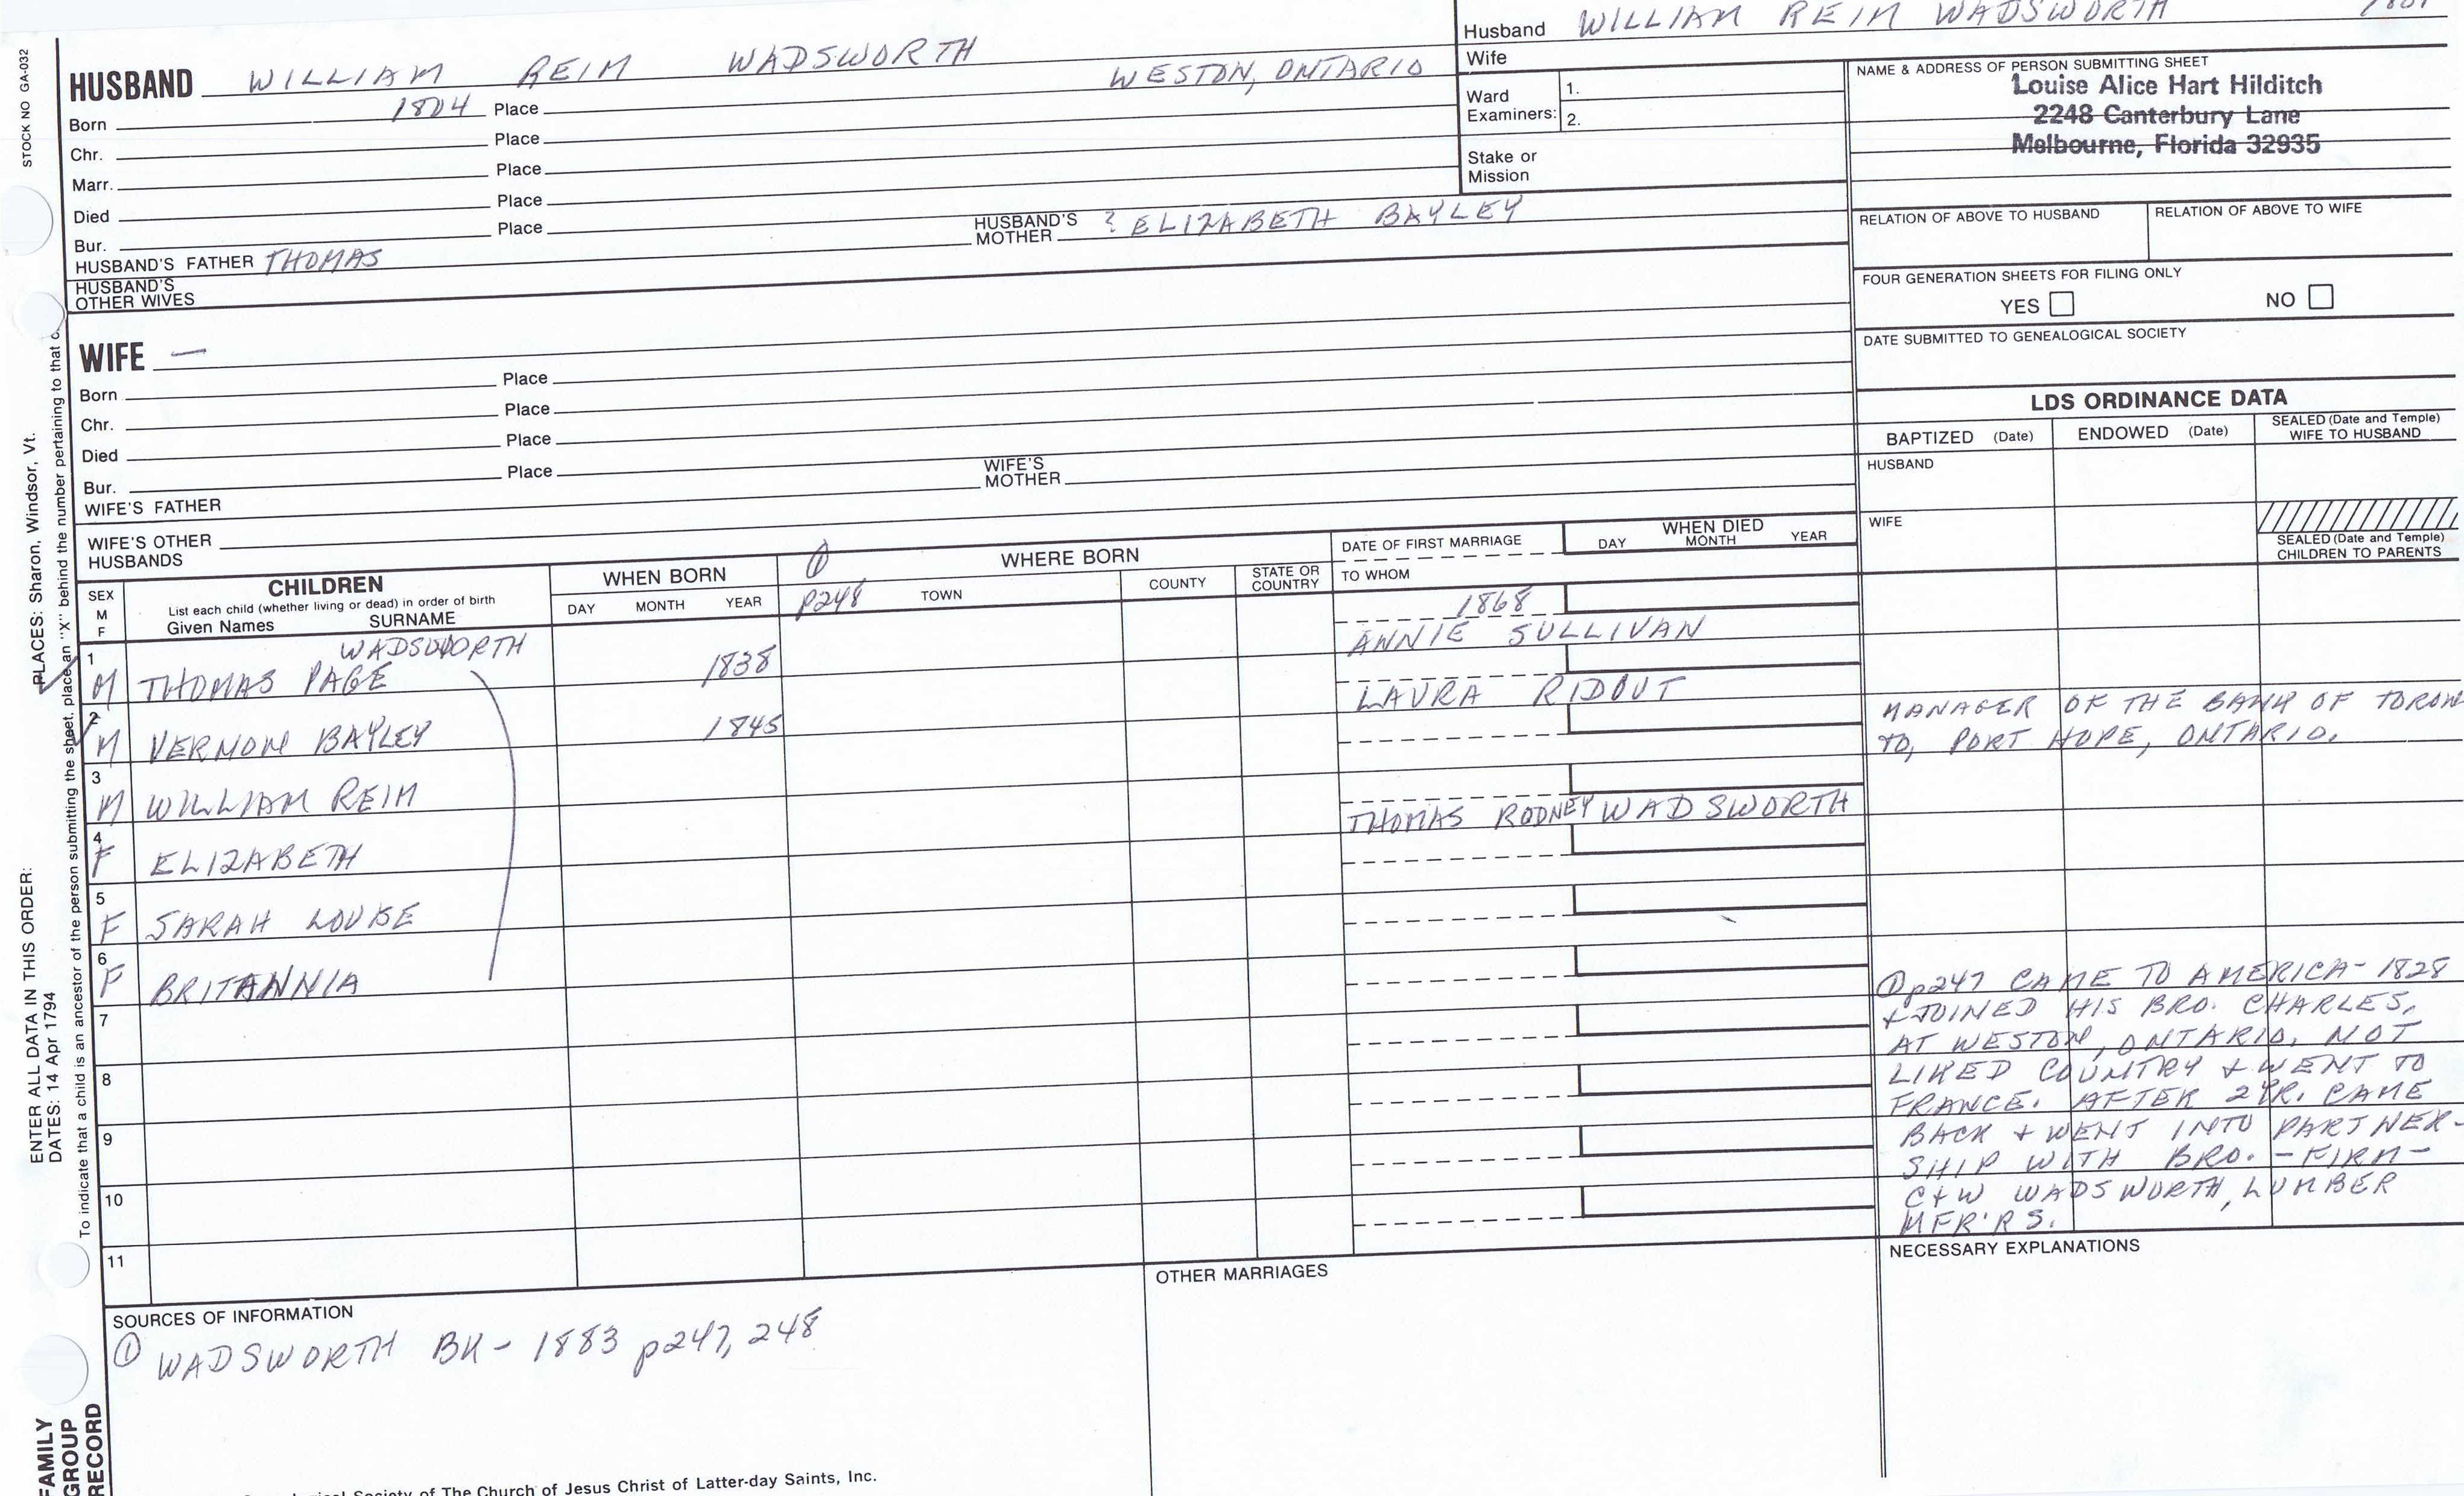 STOCK NO GA-032
HUSBAND WILLIAM REIM WADSWORTH
Born 1804 Place WESTON, ONTARIO
Chr. Place
Marr. Place
Died Place
Bur. Place
HUSBAND'S FATHER THOMAS HUSBAND'S MOTHER ? ELIZABETH BAYLEY
HUSBAND'S OTHER WIVES
Husband WILLIAM REIM WADSWORTH
Wife
Ward Examiners: 1.
2.
Stake or Mission
NAME & ADDRESS OF PERSON SUBMITTING SHEET
Louise Alice Hart Hilditch
2248 Canterbury Lane
Melbourne, Florida 32935
RELATION OF ABOVE TO HUSBAND RELATION OF ABOVE TO WIFE
FOUR GENERATION SHEETS FOR FILING ONLY
YES NO
DATE SUBMITTED TO GENEALOGICAL SOCIETY
WIFE —
Born Place
Chr. Place
Died Place
Bur. Place
WIFE'S FATHER WIFE'S MOTHER
WIFE'S OTHER HUSBANDS
LDS ORDINANCE DATA
BAPTIZED (Date) ENDOWED (Date) SEALED (Date and Temple) WIFE TO HUSBAND
HUSBAND
WIFE
SEALED (Date and Temple) CHILDREN TO PARENTS
SEX M F
CHILDREN
List each child (whether living or dead) in order of birth
Given Names SURNAME
WHEN BORN
DAY MONTH YEAR
① p248
WHERE BORN
TOWN COUNTY STATE OR COUNTRY
DATE OF FIRST MARRIAGE
TO WHOM
WHEN DIED
DAY MONTH YEAR
WADSWORTH
1 M THOMAS PAGE 1838 1868 ANNIE SULLIVAN
2 M VERNON BAYLEY 1845 LAURA RIDOUT
MANAGER OF THE BANK OF TORON
TO, PORT HOPE, ONTARIO.
3 M WILLIAM REIM
4 F ELIZABETH THOMAS RODNEY WADSWORTH
5 F SARAH LOUISE
6 F BRITANNIA
7
8
9
10
11
① p247 CAME TO AMERICA - 1828
+ JOINED HIS BRO. CHARLES,
AT WESTON, ONTARIO. NOT
LIKED COUNTRY + WENT TO
FRANCE. AFTER 2 YR. CAME
BACK + WENT INTO PARTNER-
SHIP WITH BRO. - FIRM -
C + W WADSWORTH, LUMBER
MFR'RS.
SOURCES OF INFORMATION
① WADSWORTH BK - 1883 p247, 248
OTHER MARRIAGES
NECESSARY EXPLANATIONS
ENTER ALL DATA IN THIS ORDER:
DATES: 14 Apr 1794
PLACES: Sharon, Windsor, Vt.
To indicate that a child is an ancestor of the person submitting the sheet, place an "X" behind the number pertaining to that
FAMILY
GROUP
RECORD
Society of The Church of Jesus Christ of Latter-day Saints, Inc.